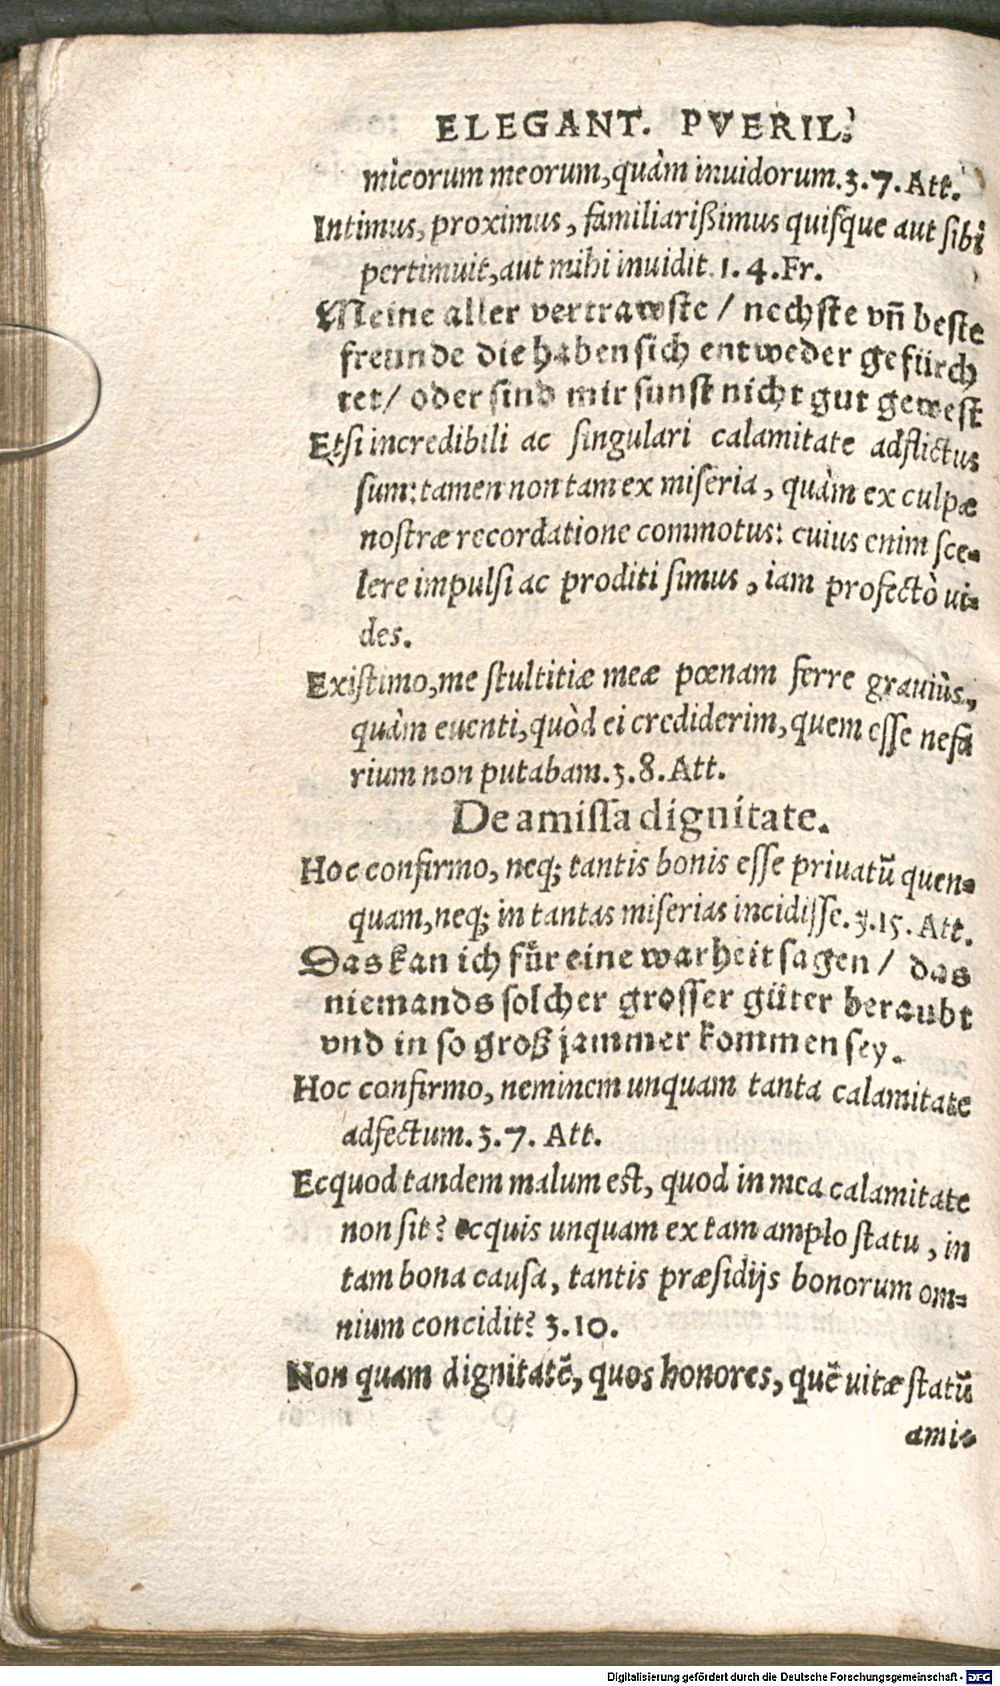 ELEGANT. PVERIL.
micorum meorum, quàm inuidorum. 3. 7. Att.
Intimus, proximus, familiarißimus quisque aut sibi
pertimuit, aut mihi inuidit. 1. 4. Fr.
Meine aller vertrawste / nechste vn̄ beste
freunde die haben sich entweder gefürch
tet / oder sind mir sunst nicht gut gewest
Etsi incredibili ac singulari calamitate adflictus
sum: tamen non tam ex miseria, quàm ex culpæ
nostræ recordatione commotus: cuius enim sce-
lere impulsi ac proditi simus, iam profectò ui-
des.
Existimo, me stultitiæ meæ pœnam ferre grauiùs,
quàm euenti, quòd ei crediderim, quem esse nefa
rium non putabam. 3. 8. Att.
De amissa dignitate.
Hoc confirmo, neq; tantis bonis esse priuatū quen-
quam, neq; in tantas miserias incidisse. 3. 15. Att.
Das kan ich für eine warheit sagen / das
niemands solcher grosser güter beraubt
vnd in so groß jammer kommen sey.
Hoc confirmo, neminem unquam tanta calamitate
adfectum. 3. 7. Att.
Ecquod tandem malum est, quod in mea calamitate
non sit? ecquis unquam ex tam amplo statu, in
tam bona causa, tantis præsidijs bonorum om-
nium concidit? 3. 10.
Non quam dignitatē, quos honores, quē uitæ statū
amis-
Digitalisierung gefördert durch die Deutsche Forschungsgemeinschaft - DFG